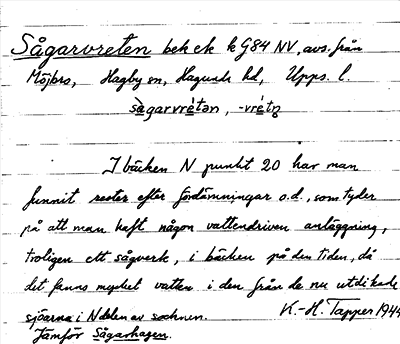 Sågarvreten bek ek k G84 NV, avs. från
Möjbro, Hagby sn, Hagunda hd, Upps. l.
sågarvrétən, -vrétʒ
I bäcken N punkt 20 har man
funnit rester efter fördämningar o.d., som tyder
på att man haft någon vattendriven anläggning,
troligen ett sågverk, i bäcken på den tiden, då
det fanns mycket vatten i den från de nu utdikade
sjöarna i N delen av socknen.
K.-H. Tapper 1944
Jämför Sågarhagen.